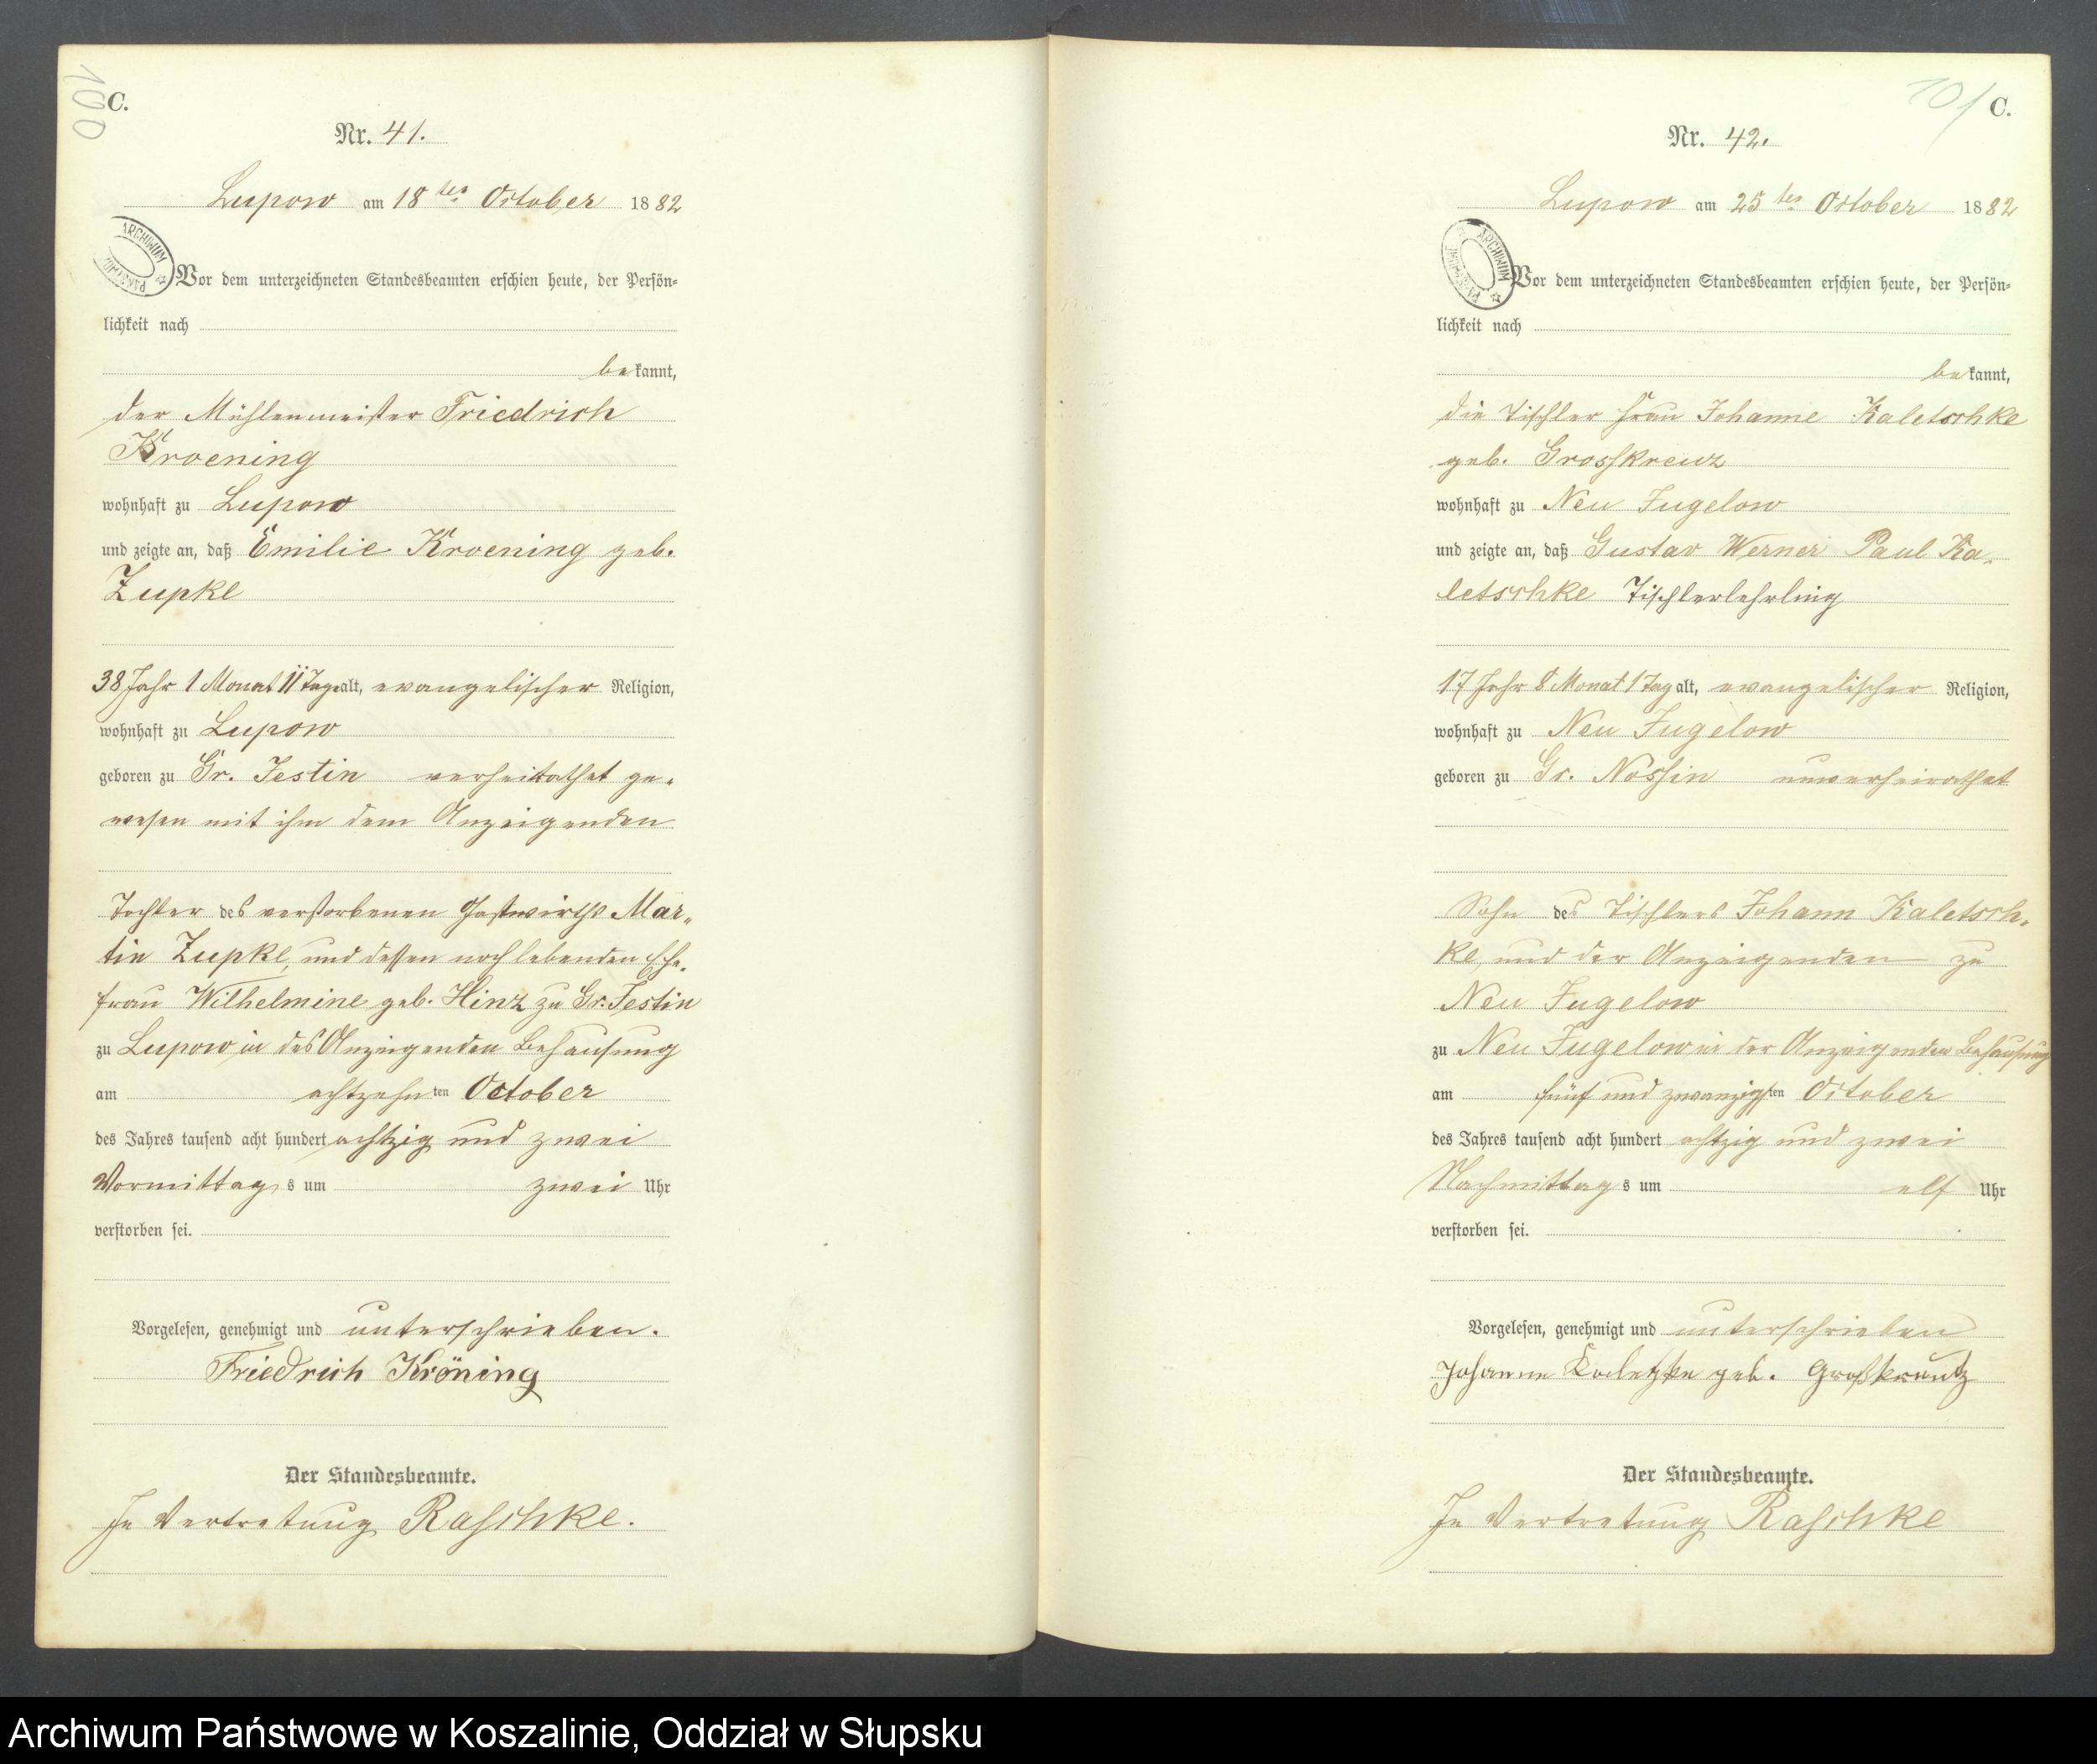 100
C.
Nr. 41.
Lupow am 18ten October 1882
ARCHIWUM
Vor dem unterzeichneten Standesbeamten erschien heute, der Persön-
lichkeit nach
bekannt,
der Mühlenmeister Friedrich
Kroening
wohnhaft zu Lupow
und zeigte an, daß Emilie Kroening geb.
Zupke
38 Jahr 1 Monat 11 Tage alt, evangelischer Religion,
wohnhaft zu Lupow
geboren zu Gr. Jestin verheirathet ge-
wesen mit ihm dem Anzeigenden
Tochter des verstorbenen Gastwirths Mar-
tin Zupke, und dessen noch lebenden Ehe-
frau Wilhelmine geb. Hinz zu Gr. Jestin
zu Lupow in des Anzeigenden Behausung
am achtzehnten October
des Jahres tausend acht hundert achtzig und zwei
Vormittags um zwei Uhr
verstorben sei.
Vorgelesen, genehmigt und unterschrieben.
Friedrich Kröning
Der Standesbeamte.
In Vertretung Raschke.
101
C.
Nr. 42.
Lupow am 25ten October 1882
ARCHIWUM
Vor dem unterzeichneten Standesbeamten erschien heute, der Persön-
lichkeit nach
bekannt,
die Tischler Frau Johanne Kaletschke
geb. Grosskreuz
wohnhaft zu Neu Jugelow
und zeigte an, daß Gustav Werner Paul Ka-
letschke Tischlerlehrling
17 Jahr 8 Monat 1 Tag alt, evangelischer Religion,
wohnhaft zu Neu Jugelow
geboren zu Gr. Nossin unverheirathet
Sohn des Tischlers Johann Kaletsch-
ke, und der Anzeigenden zu
Neu Jugelow
zu Neu Jugelow in der Anzeigenden Behausung
am fünf und zwanzigsten October
des Jahres tausend acht hundert achtzig und zwei
Nachmittags um elf Uhr
verstorben sei.
Vorgelesen, genehmigt und unterschrieben
Johanne Kaletzke geb. Großkreutz
Der Standesbeamte.
In Vertretung Raschke
Archiwum Państwowe w Koszalinie, Oddział w Słupsku